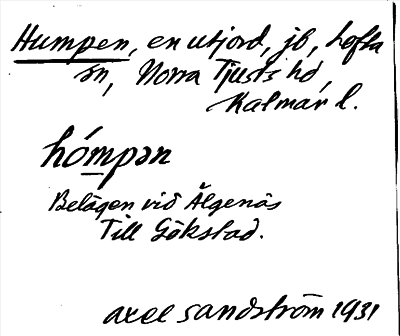 Humpen, en utjord, jb, Lofta
sn, Norra Tjusts hd,
Kalmar l.
hómpən
Belägen vid Älgenäs
Till Gökstad.
Axel Sandström 1931